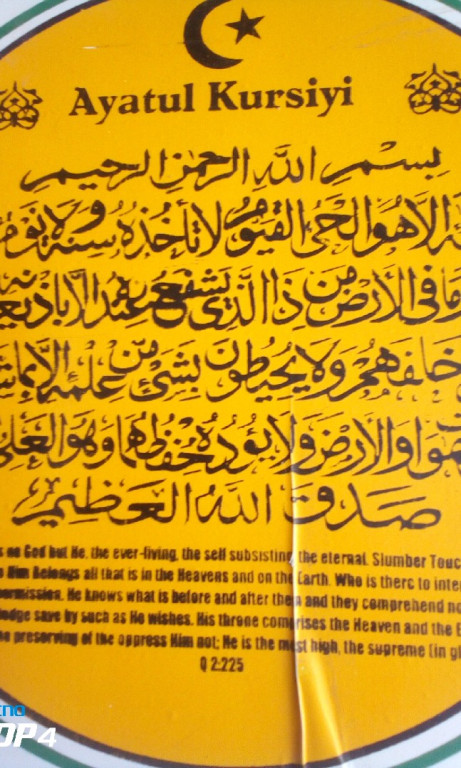 Ayatul Kursiyi
بسم الله الرحمن الرحيم
الا هو الحي القيوم لا تأخذه سنة ولا نوم
وما في الأرض من ذا الذي يشفع عنده الا باذنه
خلفهم ولا يحيطون بشئ من علمه الا بما
والأرض ولا يؤده حفظهما وهو العلي
صدق الله العظيم
s no God but He, the ever-living, the self subsisting the eternal. Slumber Touc
Him Belongs all that is in the Heavens and on the Earth. Who is there to inter
permission. He knows what is before and after them and they comprehend no
ledge save by such as He wishes. His throne comprises the Heaven and the E
preserving of the oppress Him not; He is the most high, the supreme (in gl
Q 2:225
OP 4